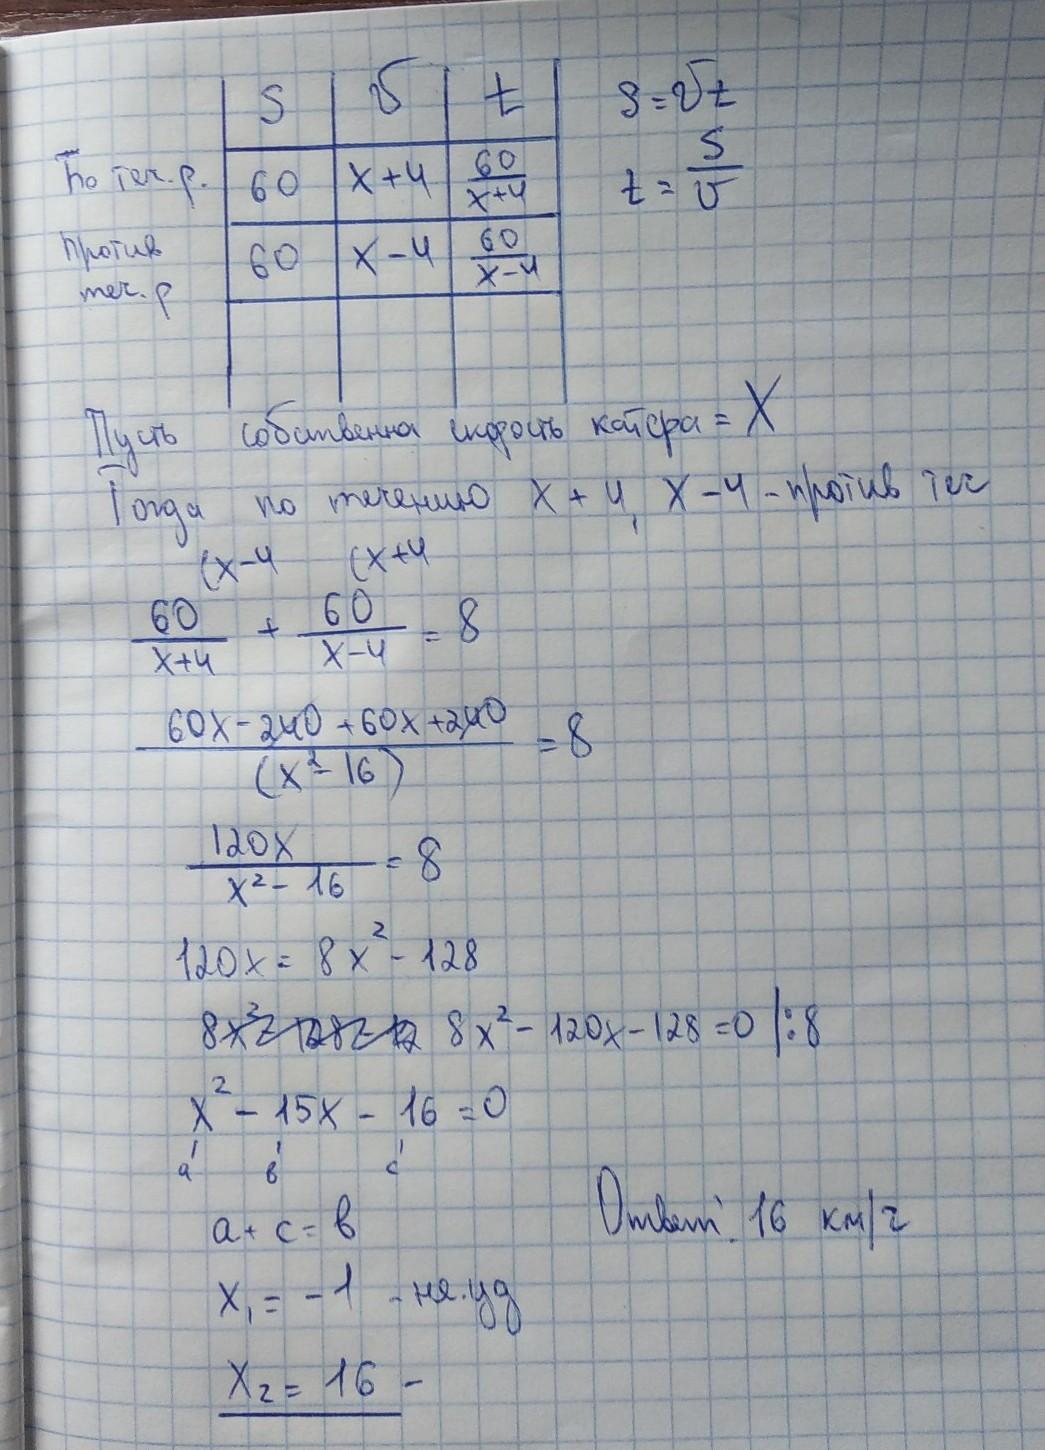 S v t
По теч. р. 60 x+4 60/x+4
против теч. р 60 x-4 60/x-4
S=vt
t = S/v
Пусть собственна скорость катера = X
Тогда по течению x+4, x-4 - против теч
(x-4 (x+4
60/x+4 + 60/x-4 = 8
60x-240+60x+240/(x²-16) = 8
120x/x²-16 = 8
120x = 8x²-128
8x²-120x-128=0 |:8
x²-15x-16=0
a в c
a+c=в
x₁=-1 - не.уд
x₂=16 -
Ответ: 16 км/ч